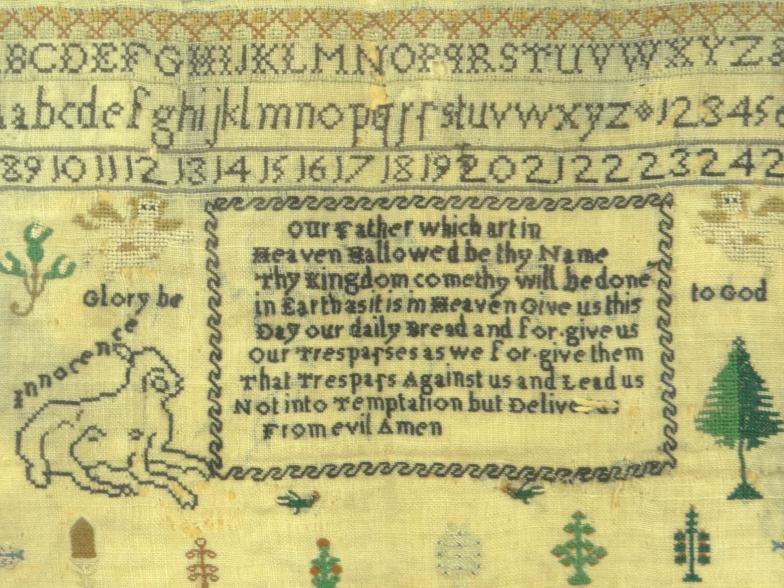 ABCDEFGHIJKLMNOPQRSTUVWXYZ&
abcdefghijklmnopqrſstuvwxyz 123456
8910111213141516171819202122232425
Our Father which art in
Heaven Hallowed be thy Name
Thy Kingdom come thy will be done
in Earth as it is in Heaven Give us this
Day our daily Bread and for-give us
Our Trespaſses as we for-give them
That Trespaſs Against us and Lead us
Not into Temptation but Deliver us
From evil Amen
Glory be
to God
Innocence